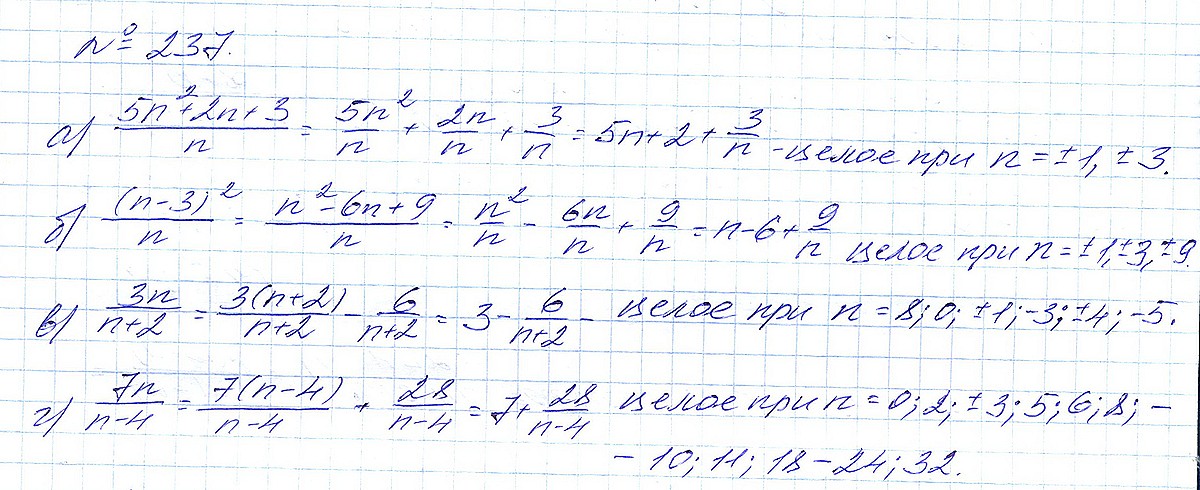 № 237.
а) (5n²+2n+3)/n = 5n²/n + 2n/n + 3/n = 5n+2+3/n - целое при n = ±1, ±3.
б) (n-3)²/n = (n²-6n+9)/n = n²/n - 6n/n + 9/n = n-6+9/n целое при n = ±1, ±3, ±9.
в) 3n/(n+2) = 3(n+2)/(n+2) - 6/(n+2) = 3 - 6/(n+2) - целое при n = 8; 0; ±1; -3; ±4; -5.
г) 7n/(n-4) = 7(n-4)/(n-4) + 28/(n-4) = 7 + 28/(n-4) целое при n = 0; 2; ±3; 5; 6; 8; -
- 10; 11; 18 - 24; 32.